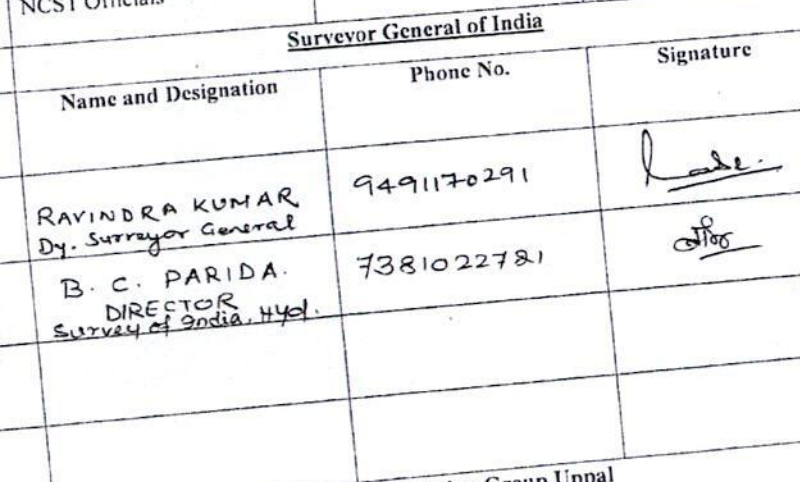 NCST Officials
Surveyor General of India
Name and Designation
Phone No.
Signature
RAVINDRA KUMAR
Dy. Surveyor General
9491170291
B. C. PARIDA.
DIRECTOR
Survey of India, Hyd.
7381022781
Group Uppal